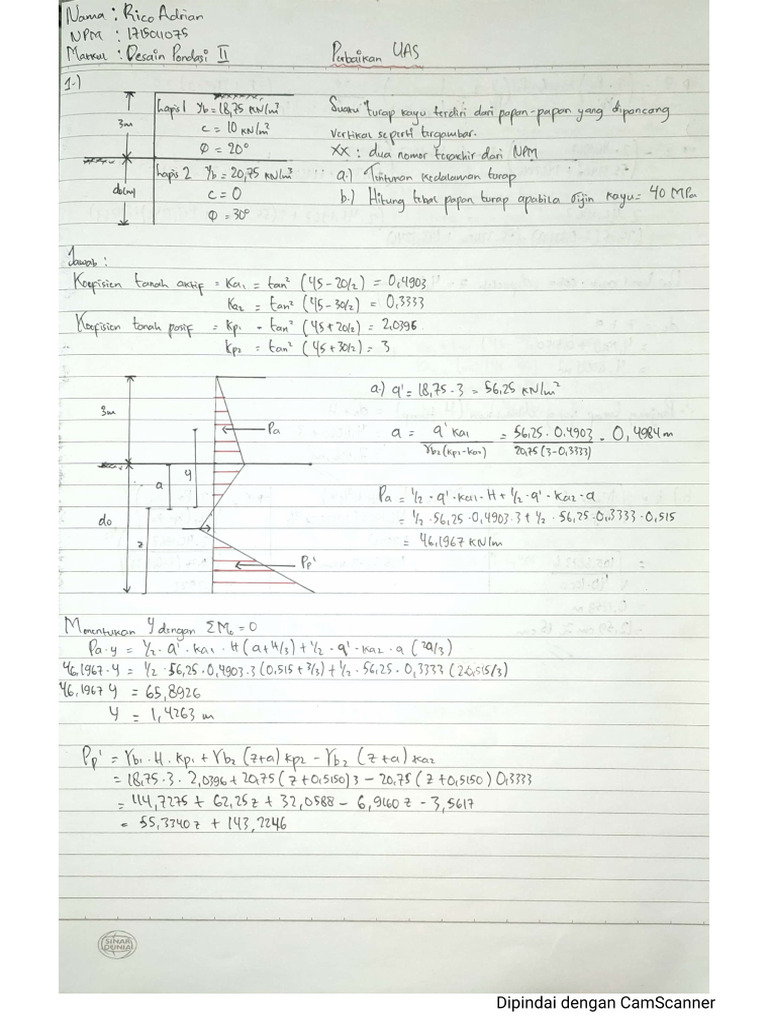 Nama : Rico Adrian
NPM : 1715011075
Matkul : Desain Pondasi II Perbaikan UAS
1.)
lapis 1 γb = 18,75 KN/m³
c = 10 KN/m²
Φ = 20°
3m
lapis 2 γb = 20,75 KN/m³
c = 0
Φ = 30°
do(m)
Suatu turap kayu terdiri dari papan-papan yang dipancang
vertikal seperti tergambar.
XX : dua nomor terakhir dari NPM
a.) Tentukan kedalaman turap
b.) Hitung tebal papan turap apabila σijin kayu = 40 MPa
Jawab :
Koefisien tanah aktif = Ka1 = tan² (45 - 20/2) = 0,4903
Ka2 = tan² (45 - 30/2) = 0,3333
Koefisien tanah pasif = Kp1 = tan² (45 + 20/2) = 2,0396
Kp2 = tan² (45 + 30/2) = 3
3m
Pa
y
a
do
z
Pp'
a.) q' = 18,75 · 3 = 56,25 KN/m²
a = q' Ka1 / γb2 (Kp2 - Ka2) = 56,25 · 0,4903 / 20,75 (3 - 0,3333) = 0,4984 m
Pa = 1/2 · q' · Ka1 · H + 1/2 · q' · Ka2 · a
= 1/2 · 56,25 · 0,4903 · 3 + 1/2 · 56,25 · 0,3333 · 0,515
= 46,1967 KN/m
Menentukan Y dengan ΣMo = 0
Pa · y = 1/2 · q' · Ka1 · H (a + H/3) + 1/2 · q' · Ka2 · a (2a/3)
46,1967 · y = 1/2 · 56,25 · 0,4903 · 3 (0,515 + 3/3) + 1/2 · 56,25 · 0,3333 (2.0,515/3)
46,1967 y = 65,8926
y = 1,4263 m
Pp' = γb1 · H · Kp1 + γb2 (z + a) Kp2 - γb2 (z + a) Ka2
= 18,75 · 3 · 2,0396 + 20,75 (z + 0,5150) 3 - 20,75 (z + 0,5150) 0,3333
= 114,7275 + 62,25z + 32,0588 - 6,9160 z - 3,5617
= 55,3340 z + 143,2246
SINAR
DUNIA
Dipindai dengan CamScanner